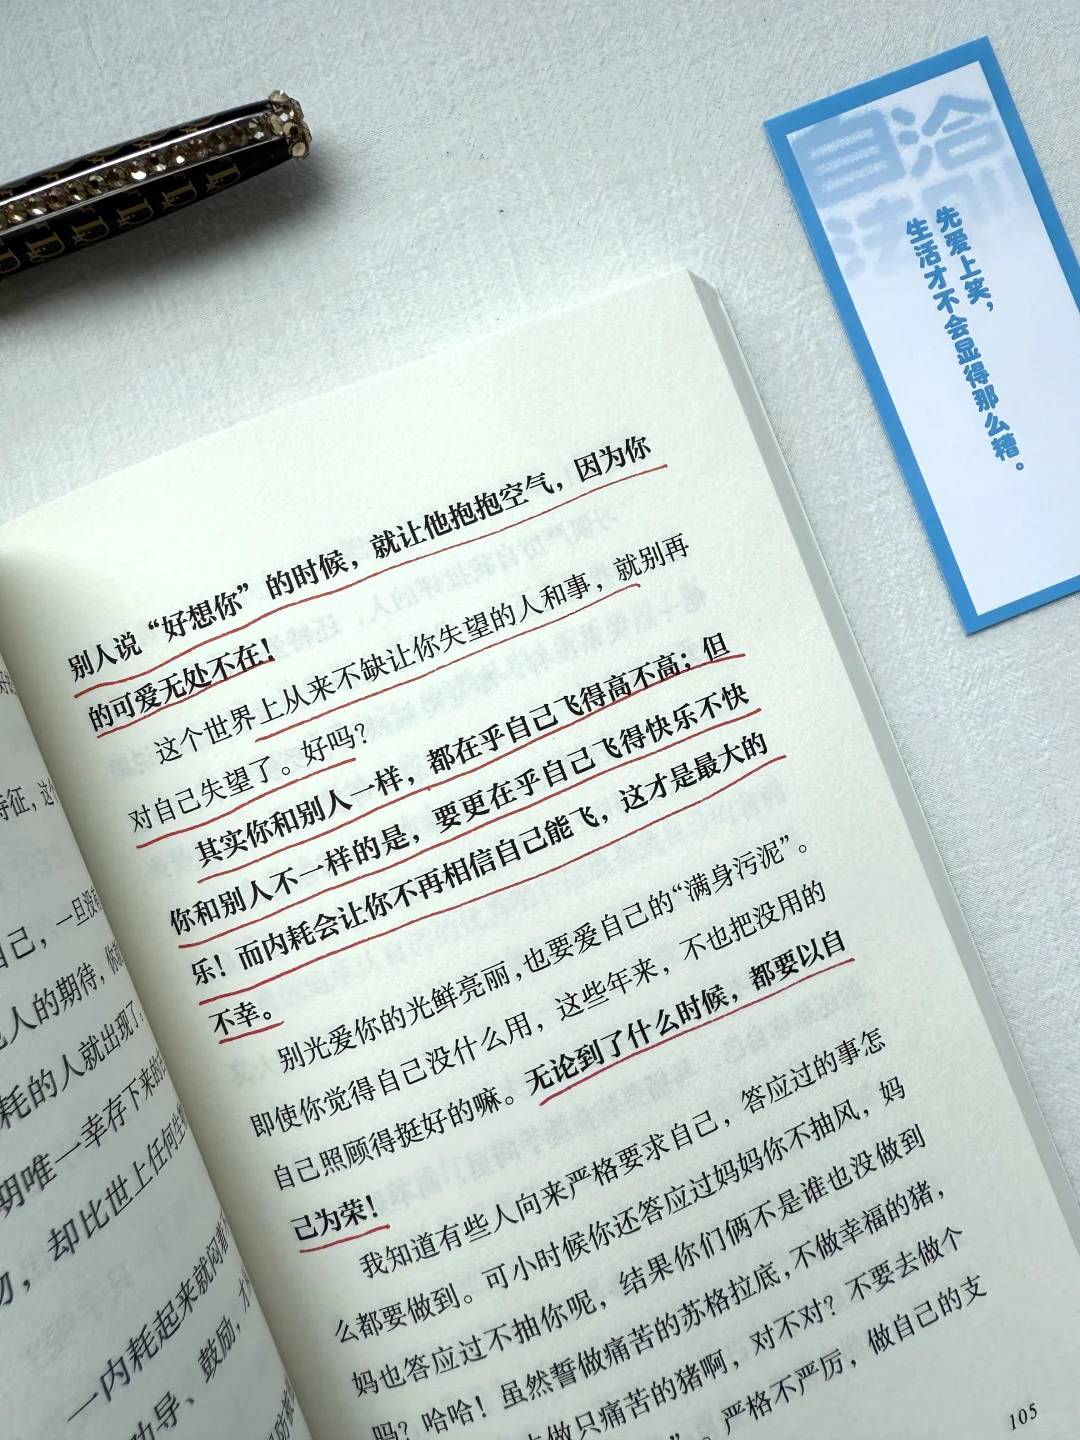 自洽
先爱上笑，
生活才不会显得那么糟。
别人说“好想你”的时候，就让他抱抱空气，因为你
的可爱无处不在！
这个世界上从来不缺让你失望的人和事，就别再
对自己失望了。好吗？
其实你和别人一样，都在乎自己飞得高不高；但
你和别人不一样的是，要更在乎自己飞得快乐不快
乐！而内耗会让你不再相信自己能飞，这才是最大的
不幸。
别光爱你的光鲜亮丽，也要爱自己的“满身污泥”。
即使你觉得自己没什么用，这些年来，不也把没用的
自己照顾得挺好的嘛。无论到了什么时候，都要以自
己为荣！
我知道有些人向来严格要求自己，答应过的事怎
么都要做到。可小时候你还答应过妈妈你不抽风，妈
妈也答应过不抽你呢，结果你们俩不是谁也没做到
吗？哈哈！虽然誓做痛苦的苏格拉底，不做幸福的猪，
做只痛苦的猪啊，对不对？不要去做个
”。严格不严厉，做自己的支
105
特征，这
自己，一旦没有
他人的期待，
耗的人就出现了：
期唯一幸存下来的
，却比世上任何生
一内耗起来就闷
劝导、鼓励，